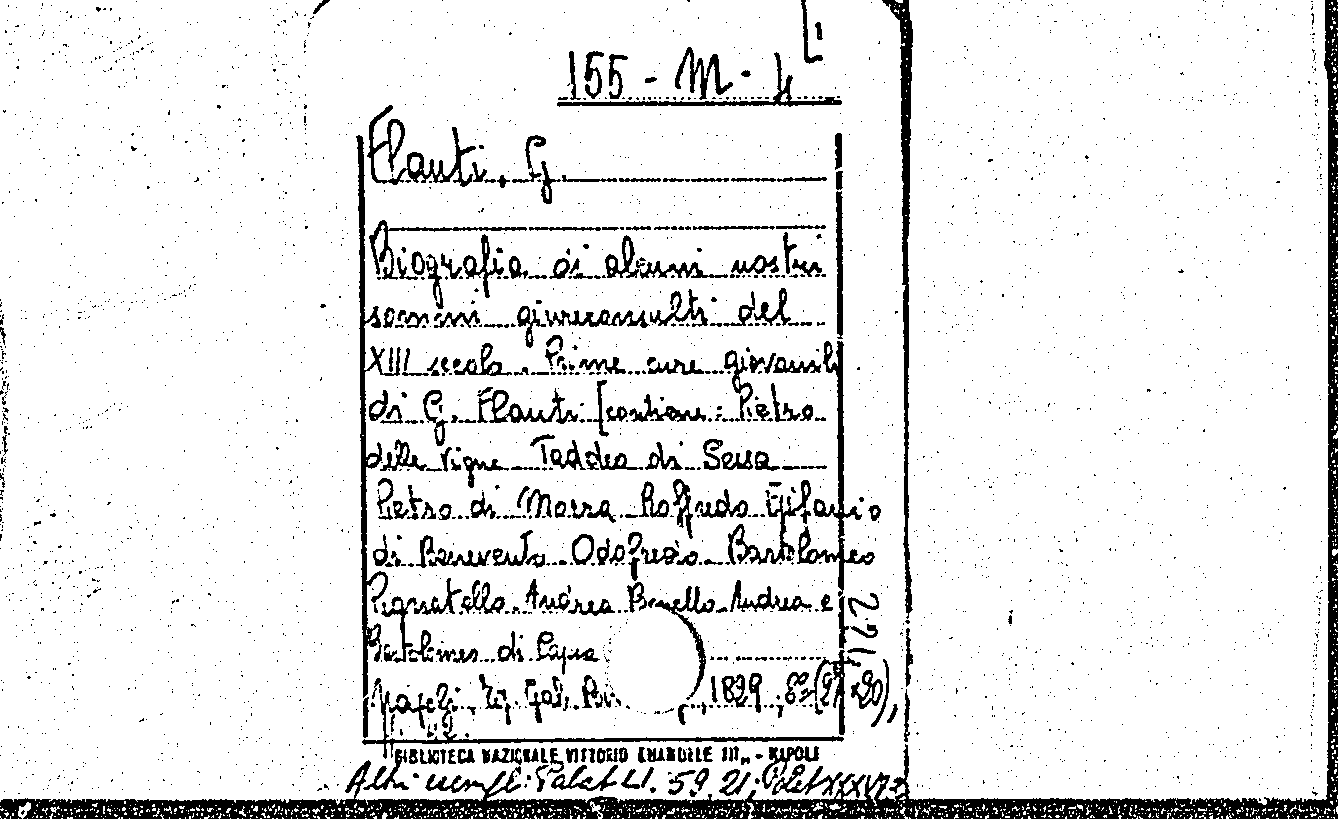 155 - M - 4
Flauti, G.
Biografia di alcuni nostri
sommi giureconsulti del
XIII secolo. Prime cure giovanili
di G. Flauti [contiene: Pietro
delle Vigne - Taddeo di Sessa
Pietro di Morra - Roffredo Epifanio
di Benevento - Odofredo - Bartolomeo
Pignatello - Andrea Bonello - Andrea e
Bartolomeo di Capua
Napoli, Tip. 1829, 8° (27×20),
BIBLIOTECA NAZIONALE VITTORIO EMANUELE III,, - NAPOLI
Altri esempl: Palat LI. 59. 21;